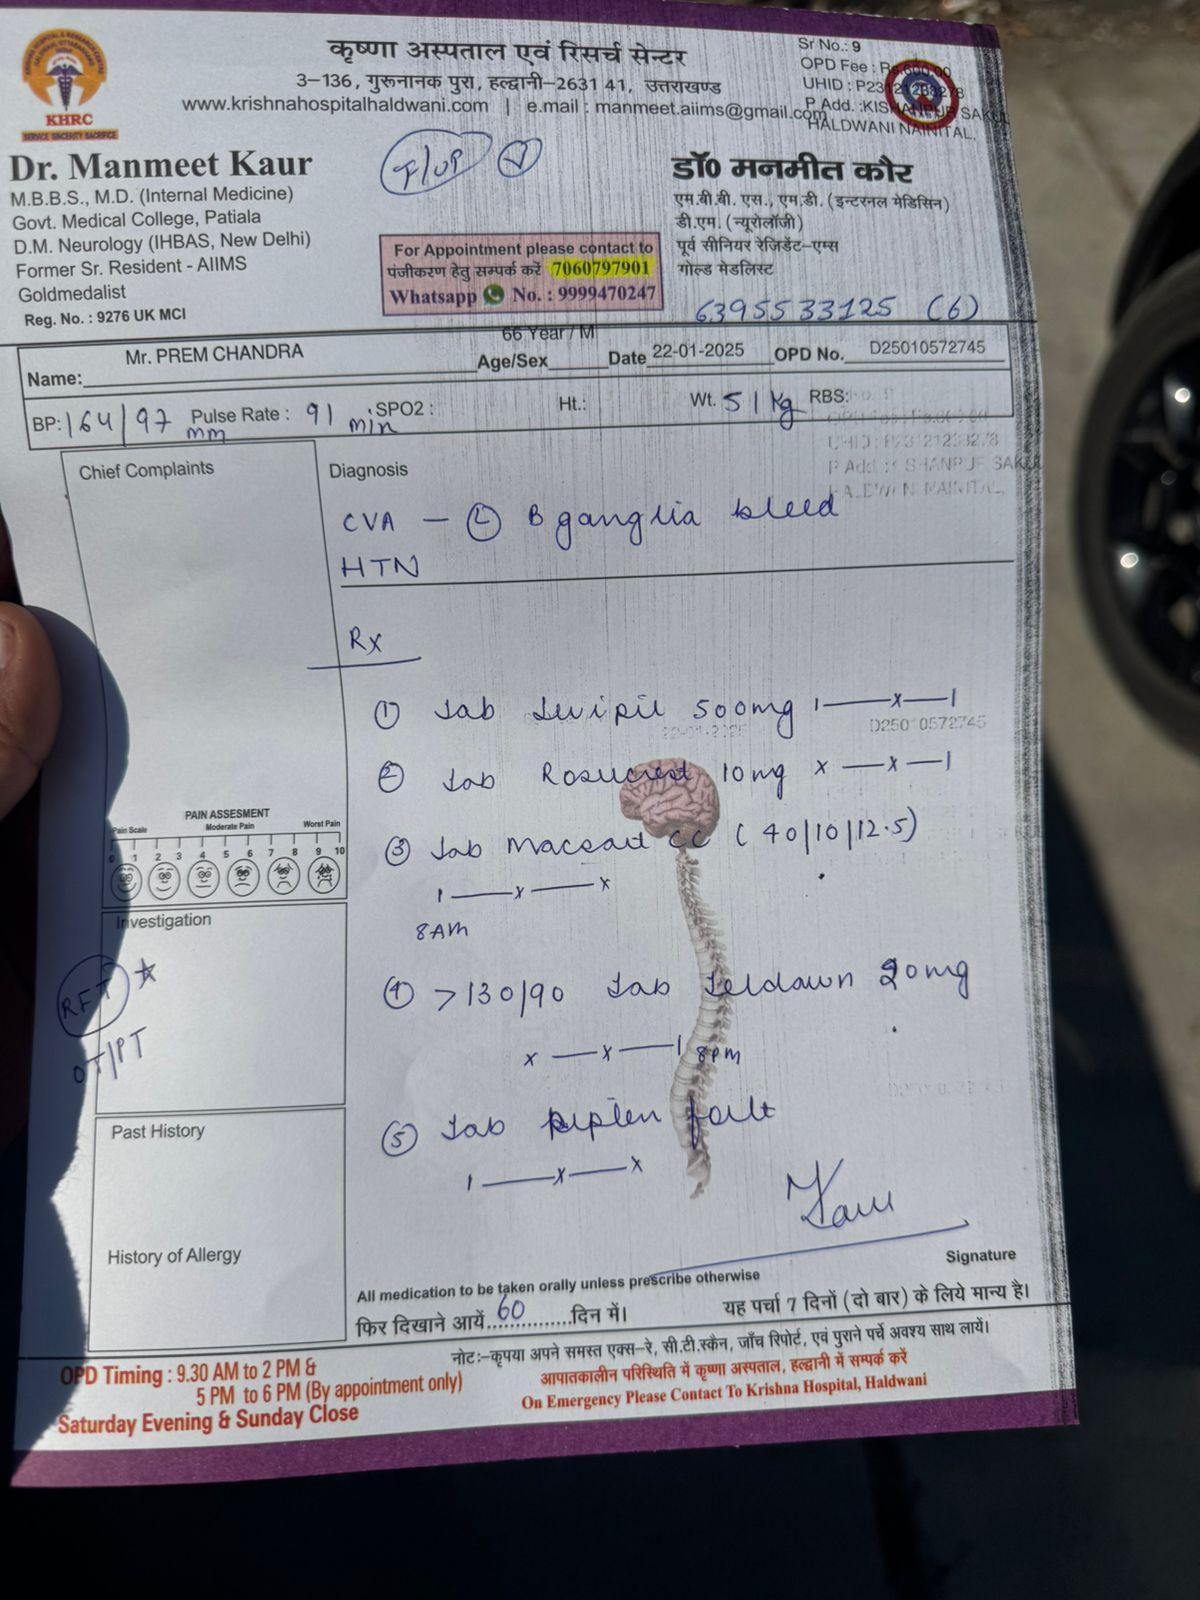 कृष्णा अस्पताल एवं रिसर्च सेन्टर
3-136, गुरूनानक पुरा, हल्द्वानी-2631 41, उत्तराखण्ड
www.krishnahospitalhaldwani.com | e.mail : manmeet.aiims@gmail.com
Sr No.: 9
OPD Fee :
UHID : P23121233278
P. Add. :KISHANPUR SAKUL
HALDWANI NAINITAL,
KHRC
SERVICE SINCERITY SACRIFICE
F/UP
Dr. Manmeet Kaur
M.B.B.S., M.D. (Internal Medicine)
Govt. Medical College, Patiala
D.M. Neurology (IHBAS, New Delhi)
Former Sr. Resident - AIIMS
Goldmedalist
Reg. No. : 9276 UK MCI
For Appointment please contact to
पंजीकरण हेतु सम्पर्क करें 7060797901
Whatsapp No. : 9999470247
डॉ0 मनमीत कौर
एम.बी.बी. एस., एम.डी. (इन्टरनल मेडिसिन)
डी.एम. (न्यूरोलॉजी)
पूर्व सीनियर रेज़िडेंट-एम्स
गोल्ड मेडलिस्ट
6395533125 (6)
Name: Mr. PREM CHANDRA Age/Sex 66 Year / M Date 22-01-2025 OPD No. D25010572745
BP: 164/97 mm Pulse Rate : 91 min SPO2 : Ht.: Wt. 51 Kg RBS:
UHID : P23121233278
P. Add. : KISHANPUR SAKUL
HALDWANI NAINITAL,
Chief Complaints
Diagnosis
CVA - (L) B ganglia bleed
HTN
Rx
① Tab Levipil 500mg 1—x—1
22-01-2025 D25010572745
② Tab Rosucrest 10mg x—x—1
③ Tab Macsart CC (40/10/12.5)
1—x—x
8AM
④ >130/90 Tab Teldawn 20mg
x—x—1 8pm
⑤ Tab forte
1—x—x
PAIN ASSESMENT
Pain Scale Moderate Pain Worst Pain
0 1 2 3 4 5 6 7 8 9 10
Investigation
RFT
OT/PT
Past History
History of Allergy
Kaur
Signature
All medication to be taken orally unless prescribe otherwise
फिर दिखाने आयें 60 दिन में। यह पर्चा 7 दिनों (दो बार) के लिये मान्य है।
नोट:-कृपया अपने समस्त एक्स-रे, सी.टी.स्कैन, जाँच रिपोर्ट, एवं पुराने पर्चे अवश्य साथ लायें।
आपातकालीन परिस्थिति में कृष्णा अस्पताल, हल्द्वानी में सम्पर्क करें
On Emergency Please Contact To Krishna Hospital, Haldwani
OPD Timing : 9.30 AM to 2 PM &
5 PM to 6 PM (By appointment only)
Saturday Evening & Sunday Close